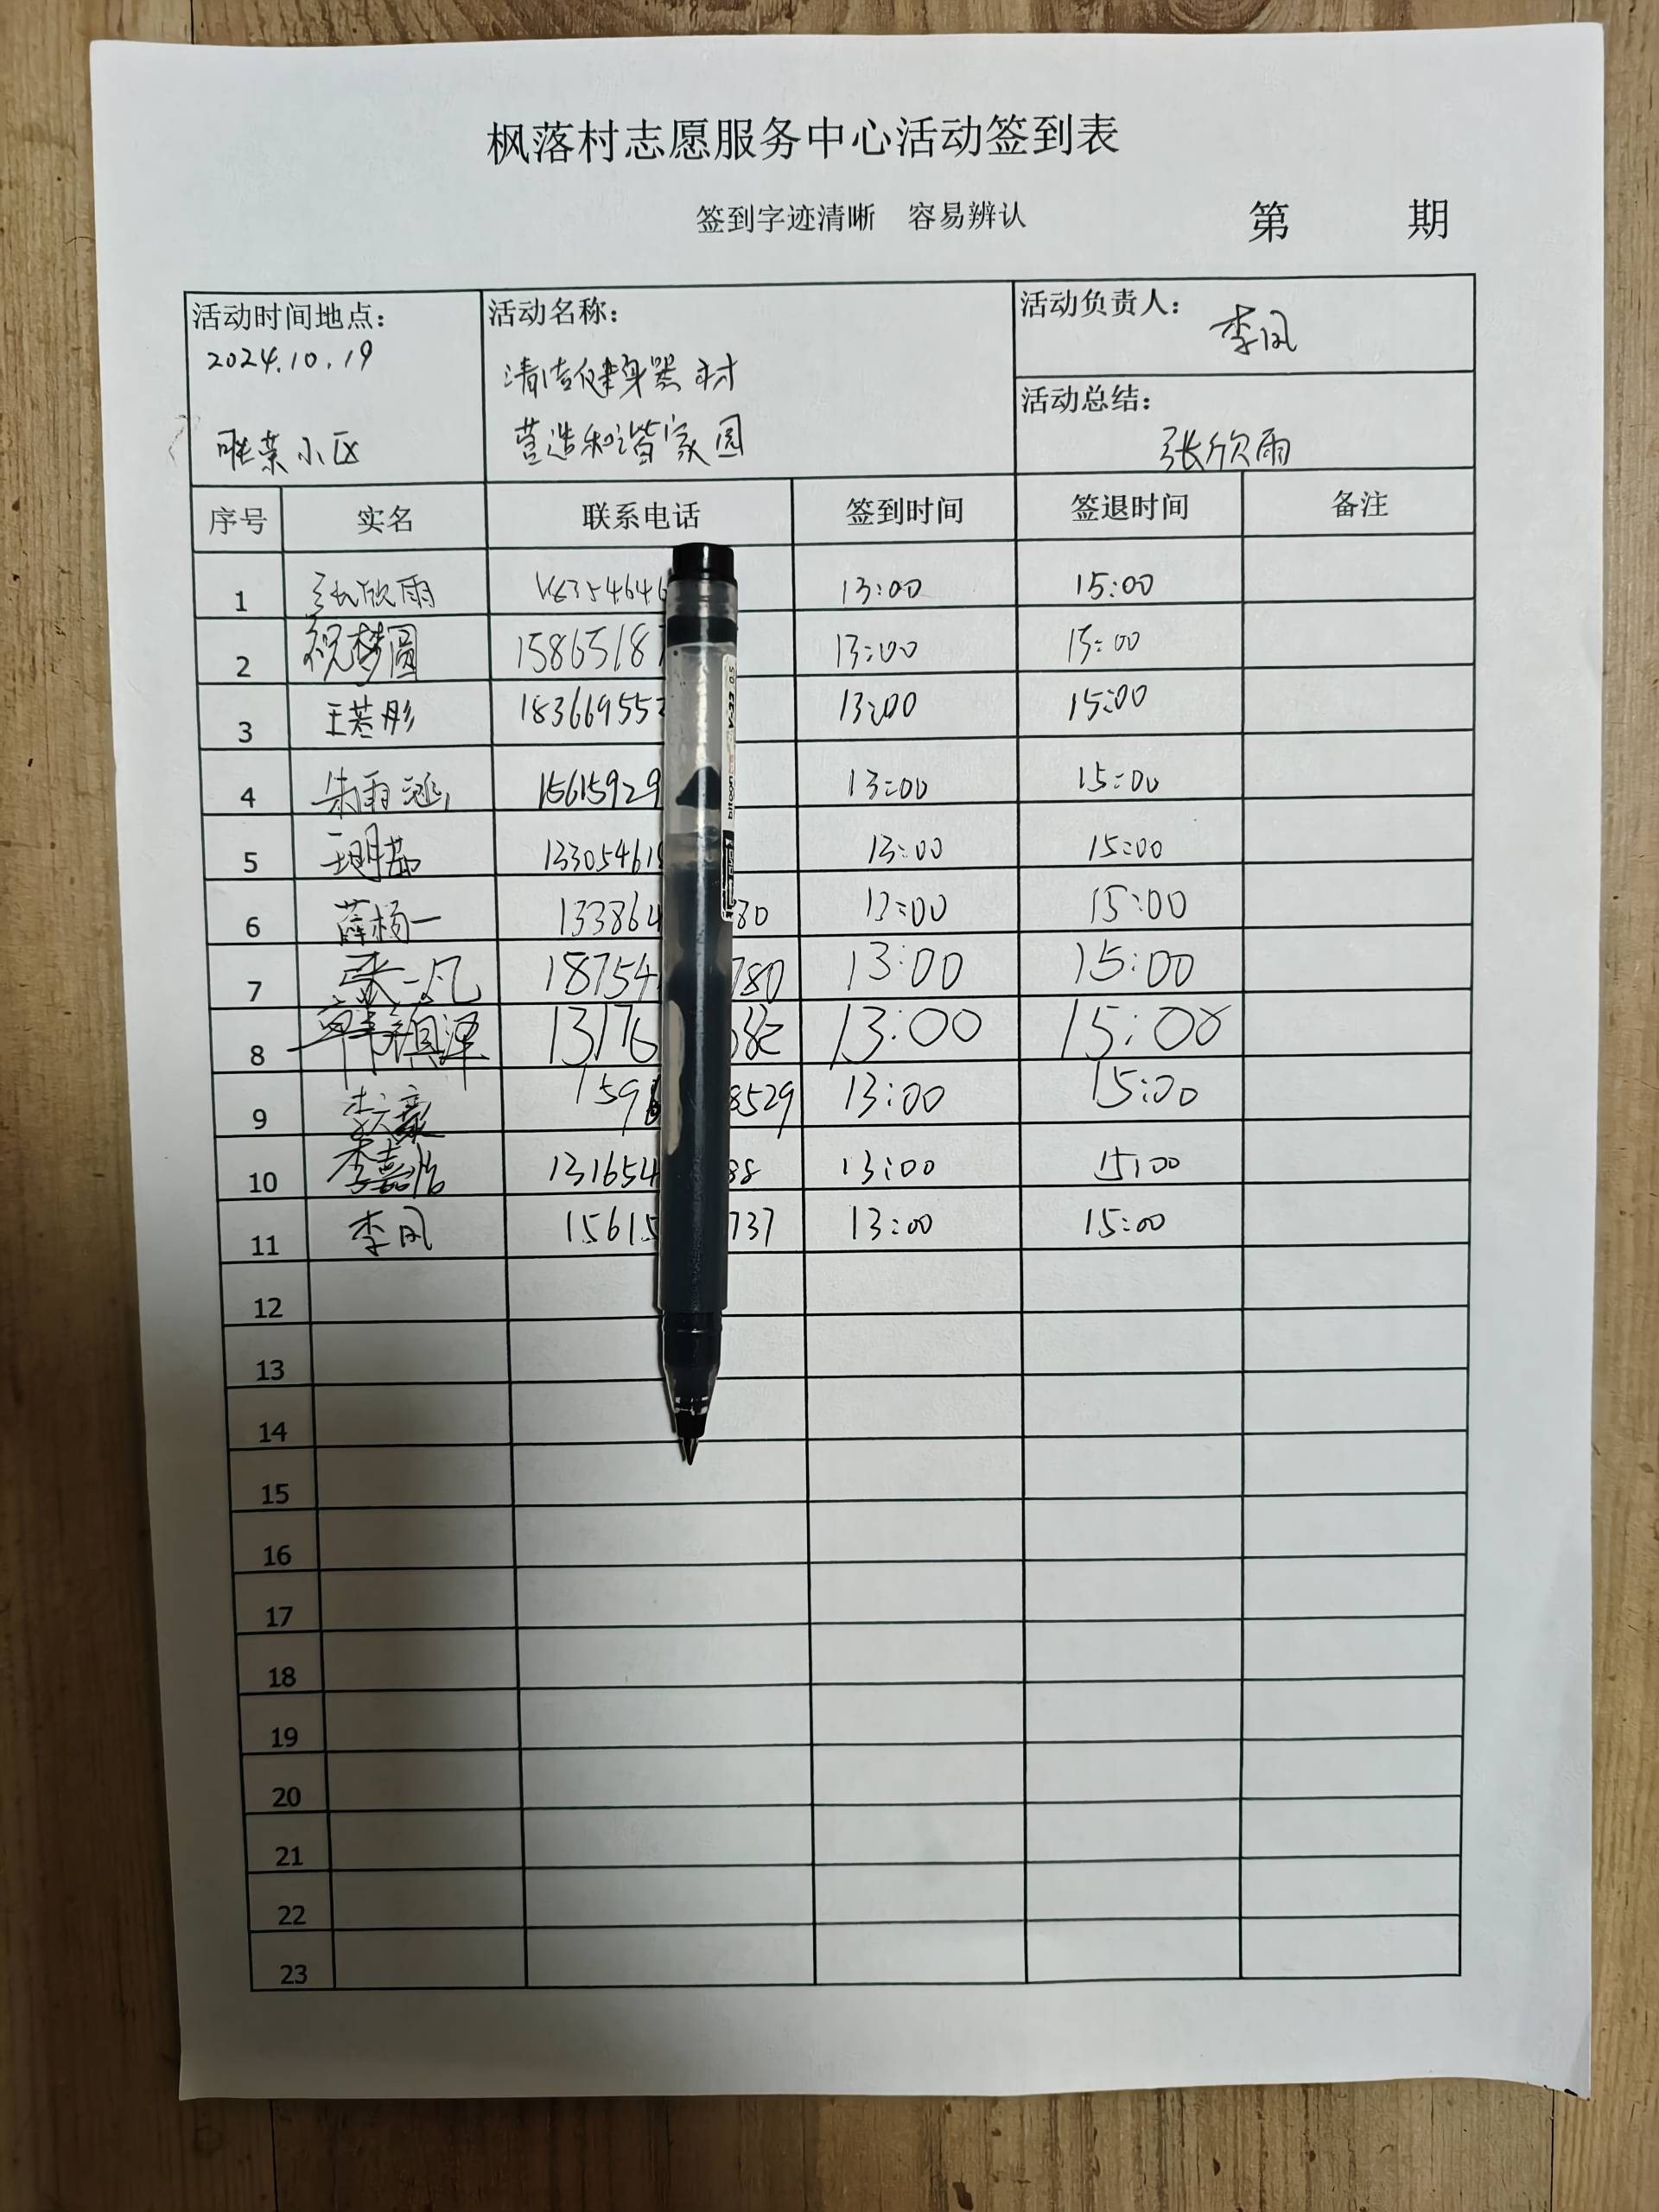 枫落村志愿服务中心活动签到表
签到字迹清晰 容易辨认 第 期
活动时间地点： 活动名称： 活动负责人：
2024.10.19 清洁健身器材 李凤
活动总结：
小区 营造和谐家园 张欣雨
序号 实名 联系电话 签到时间 签退时间 备注
1 张欣雨 18354646 13:00 15:00
2 祝梦圆 1586518 13:00 15:00
3 王若彤 18366955 13:00 15:00
4 朱雨涵 15615929 13:00 15:00
5 13305461 13:00 15:00
6 薛杨一 133864 80 13:00 15:00
7 张一凡 18754 780 13:00 15:00
8 13176 13:00 15:00
9 159 8529 13:00 15:00
10 李嘉怡 131654 88 13:00 15:00
11 李凤 15615 737 13:00 15:00
12
13
14
15
16
17
18
19
20
21
22
23